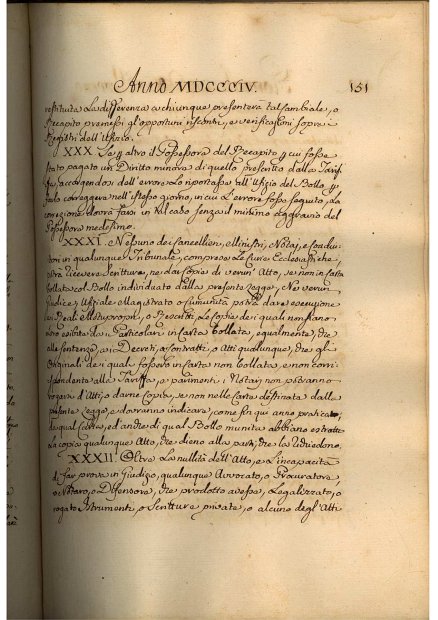 Anno MDCCCIV. 151
restituita La differenza a chiunque presenterà tal Cambiale, o
Recapito premessi gl'opportuni riscontri, e verificazioni sopra i
Registri dell'Ufizio.
XXX. Se altro il Possessore del Recapito p cui fosse
stato pagato un Diritto minore di quello prescritto dalla Tarif=
fa, accorgendosi dell'errore Lo riportasse all'Ufizio del Bollo p
farlo correggere nell'istesso giorno, in cui L'errore fosse seguito, La
correzione dovrà farsi in tal caso senza il minimo aggravio del
Possessore medesimo.
XXXI. Nessuno dei Cancellieri, Ministri, Notai, e
in qualunque Tribunale, comprese Le Curie Ecclesiastiche,
potrà ricevere Scritture, nè dar Copia di verun'Atto, se non in Carta
bollata col Bollo individuato dalla presente Legge, Nè verun
Giudice, Ufiziale Magistrato o Comunità potrà dare esecuzione
ai Reali Motupropri, o Rescritti, Le Copie dei quali non siano
loro esibite da i Particolari in Carta bollata, egualmente, che
alle Sentenze, a i Decreti, a Contratti, o Atti qualunque, che gl'
Originali de i quali fossero in Carta non bollata, e non corri=
spondente alla Tariffa, e parimenti i Notai non potranno
rogare d'Atti, o darne Copia, se non nelle Carte destinate dalla
presente Legge, e dovranno indicare, come fin qui anno praticato,
da qual Cifra, ed anche di qual Bollo munita abbiano estratto
La copia qualunque Atto, che dieno alla parti, che La richiedono.
XXXII. Oltre La nullità dell'Atto, e L'incapacità
di far prova in Giudizio, qualunque Avvocato, o Procuratore
o Notaro, o Difensore, che prodotto avesse, Legalizzato, o
rogato Istrumenti, o Scritture private, o alcuno degl'Atti